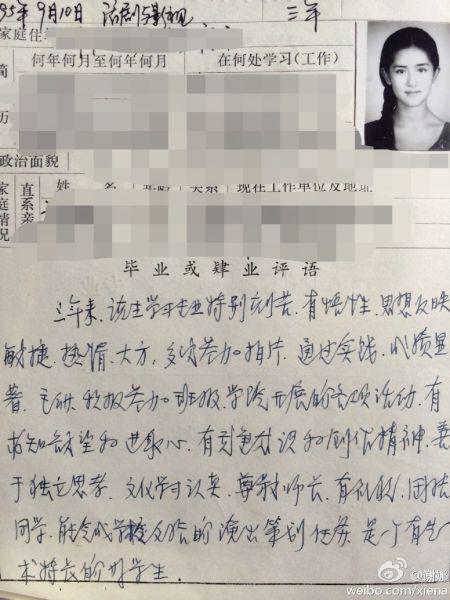 95年9月10日 话剧与影视 三年
家庭住
简
何年何月至何年何月 在何处学习(工作)
历
政治面貌
家庭情况 直系亲 姓 名 年龄 关系 现在工作单位及地址
毕业或肄业评语
三年来,该生学习专业特别刻苦、有悟性、思想反映
敏捷、热情、大方,多次参加拍片,通过实践,成绩显
著。主动、积极参加班级、学院开展的各项活动,有
求知欲望和进取心,有刻意意识和创作精神,善
于独立思考,文化学习认真,尊敬师长,有礼貌,团结
同学,能完成学校交给的演出策划任务,是一个有艺
术特长的好学生。
@谢娜
weibo.com/xiena